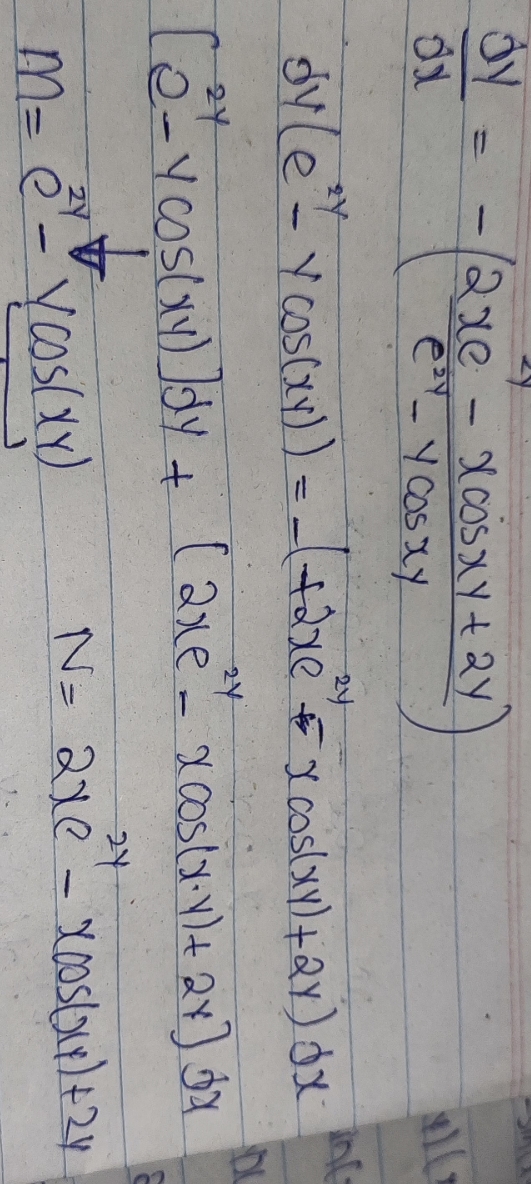 dy/dx = - (2xe^2y - xcosxy + 2y / e^2y - ycosxy)
dy(e^2y - ycos(xy)) = -(+2xe^2y - xcos(xy) + 2y)dx
[e^2y - ycos(xy)]dy + [2xe^2y - xcos(x.y) + 2y]dx
M = e^2y - ycos(xy) N = 2xe^2y - xcos(xy) + 2y